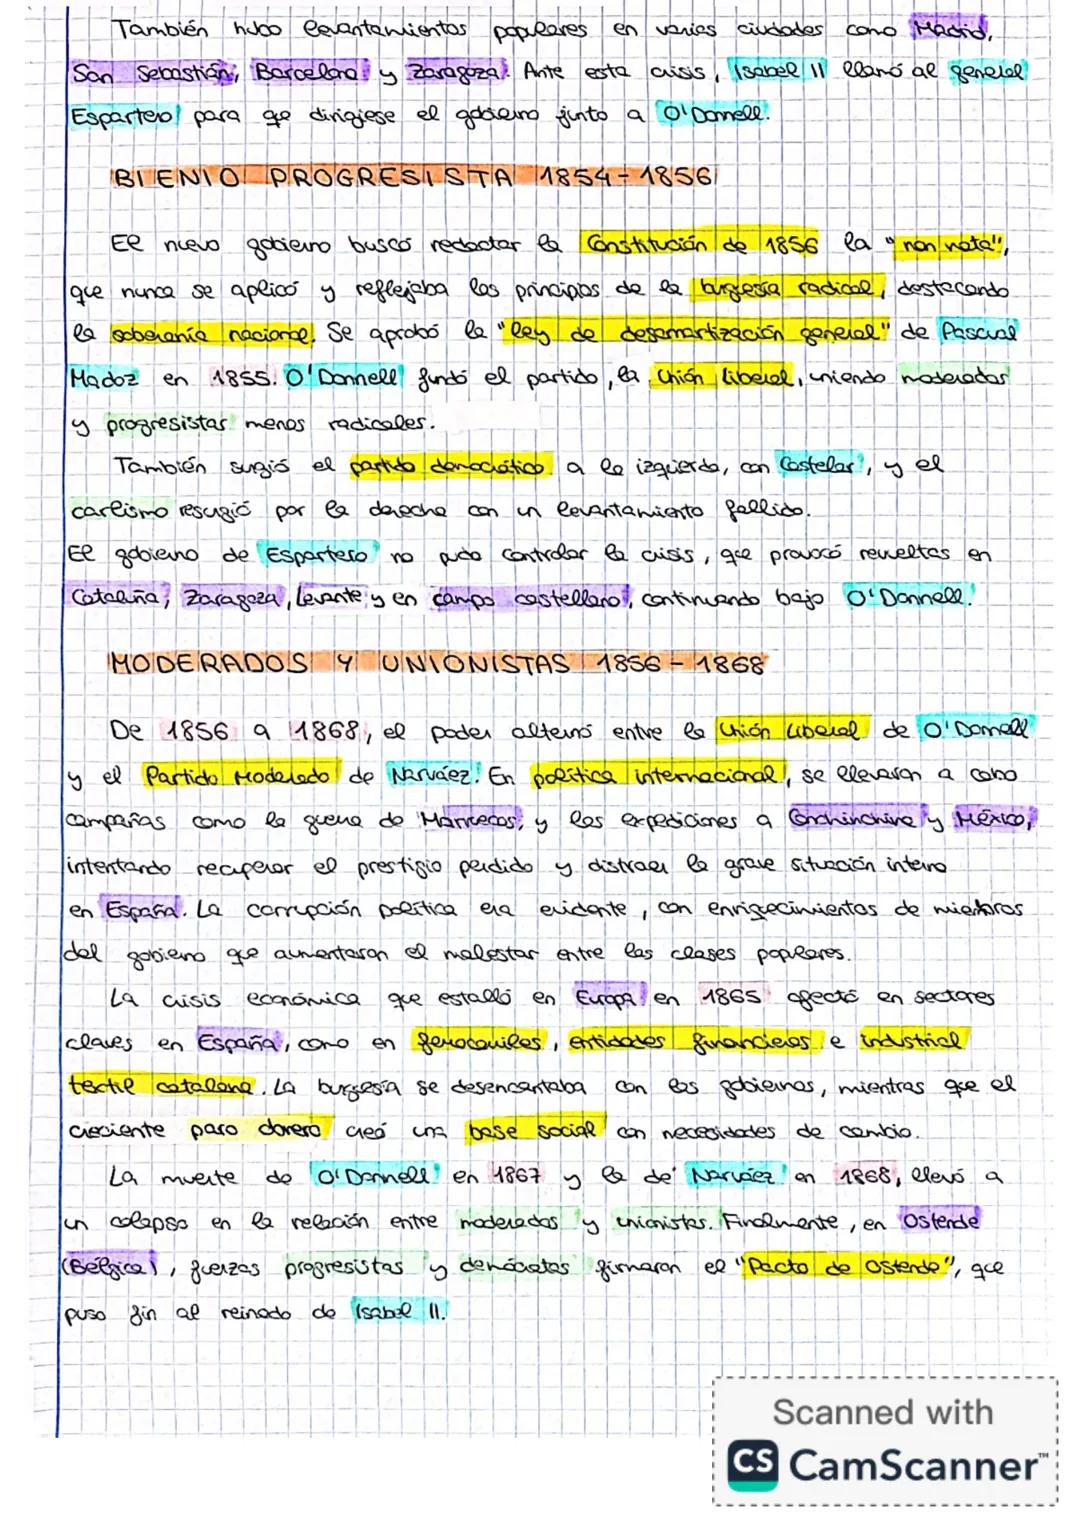 También hubo levantamientos populares en varias ciudades como Madrid,
San Sebastián, Barcelona y Zaragoza. Ante esta crisis, Isabel II llamó al general
Espartero para qe dirigiese el gobierno junto a O'Donnell.
BIENIO PROGRESISTA 1854-1856
El nuevo gobierno buscó redactar la Constitución de 1856 la "non nata",
que nunca se aplicó y reflejaba los principios de la burgesía radical, destacando
la soberanía nacional. Se aprobó la "ley de desamortización general" de Pascual
Madoz en 1855. O'Donnell fundó el partido, la Unión liberal, uniendo moderados
y progresistas menos radicales.
También surgió el partido democrático a la izquierda, con Castelar, y el
carlismo resurgió por la derecha con un levantamiento fallido.
El gobierno de Espartero no pudo controlar la crisis, que provocó revueltas en
Cataluña, Zaragoza, Levante y en campo castellano, continuando bajo O'Donnell.
MODERADOS Y UNIONISTAS 1856-1868
De 1856 a 1868, el poder alternó entre la Unión Liberal de O'Donnell
y el Partido Moderado de Narváez. En política internacional, se llevaron a cabo
campañas como la guerra de Marruecos, y las expediciones a Conchinchina y México,
intentando recuperar el prestigio perdido y distraer la grave situación interna
en España. La corrupción política era evidente, con enriqecimientos de miembros
del gobierno qe aumentaron el malestar entre las clases populares.
La crisis económica que estalló en Europa en 1865 afectó en sectores
claves en España, como en ferrocarriles, entidades financieras e industrial
textil catalana. La burgesía se desencantaba con los gobiernos, mientras qe el
creciente paro obrero creó una base social con necesidades de cambio.
La muerte de O'Donnell en 1867 y la de Narváez en 1868, llevó a
un colapso en la relación entre moderados y unionistas. Finalmente, en Ostende
(Bélgica), fuerzas progresistas y demócratas firmaron el "Pacto de Ostende", qe
puso fin al reinado de Isabel II.
Scanned with
CS CamScanner™